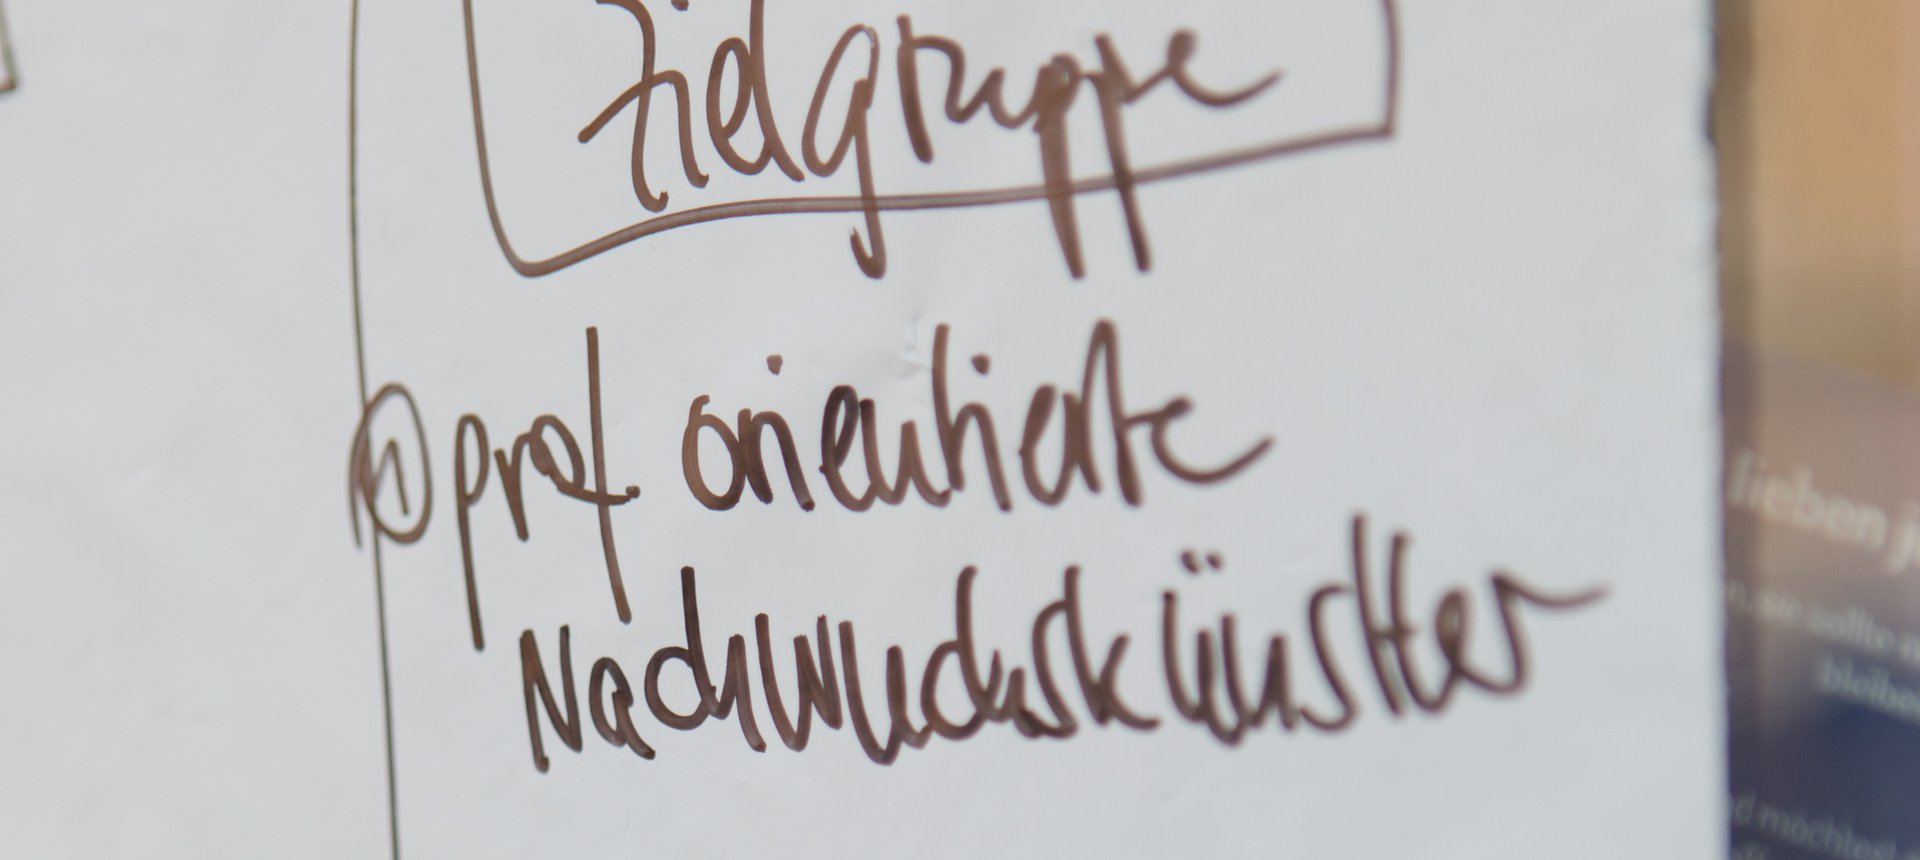 Zielgruppe
① prof orientierte
Nachwuchskünstler
lieben
sie sollte
bleiben
möchte